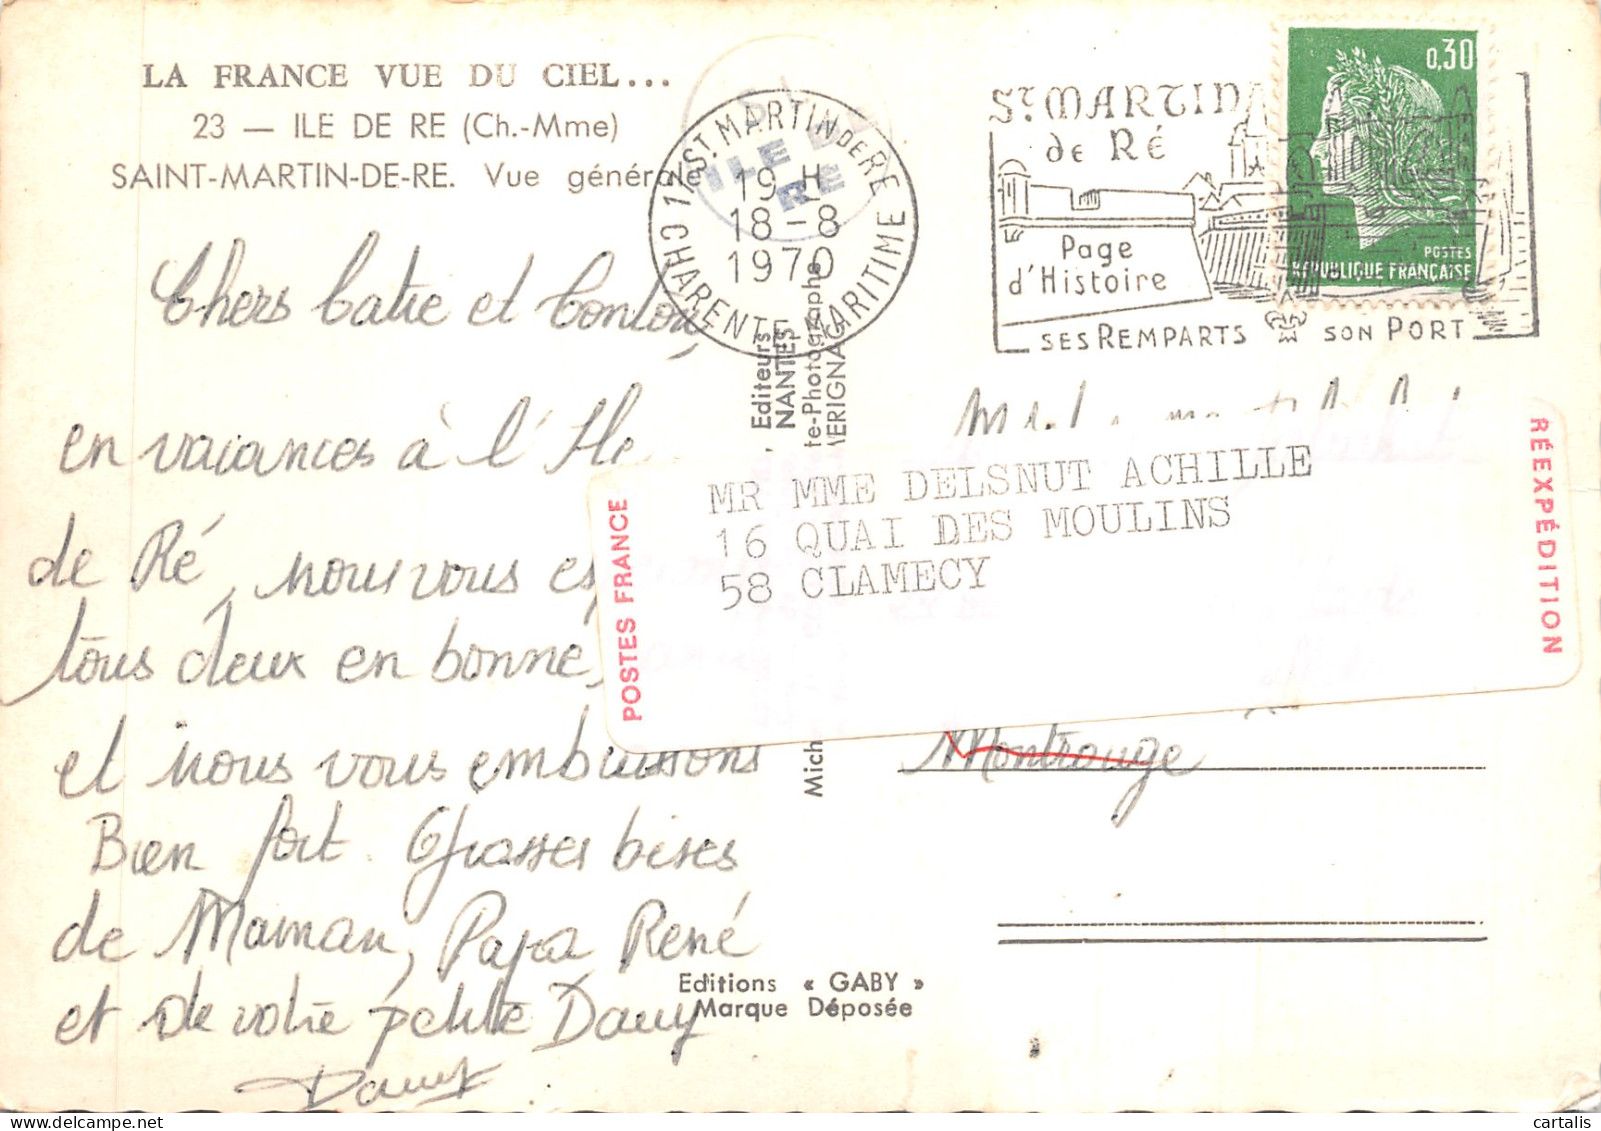 LA FRANCE VUE DU CIEL...
23 — ILE DE RE (Ch.-Mme)
SAINT-MARTIN-DE-RE. Vue générale
17 ST. MARTIN DE RE
19 H
18-8
1970
CHARENTE MARITIME
ILE DE
RE
St MARTIN
de Ré
Page
d'Histoire
SES REMPARTS SON PORT
0,30
POSTES
REPUBLIQUE FRANÇAISE
Chers et
en vacances à l'Ile
de Ré, nous vous
tous deux en bonne,
et nous vous embrassons
Bien fort. Grosses bises
de Maman, Papa René
et de votre petite Dany
Dany
, Editeurs
NANTES
te-Photographe
MERIGNAC
Mich
POSTES FRANCE
MR MME DELSNUT ACHILLE
16 QUAI DES MOULINS
58 CLAMECY
RÉEXPÉDITION
Montrouge
Editions « GABY »
Marque Déposée
cartalis